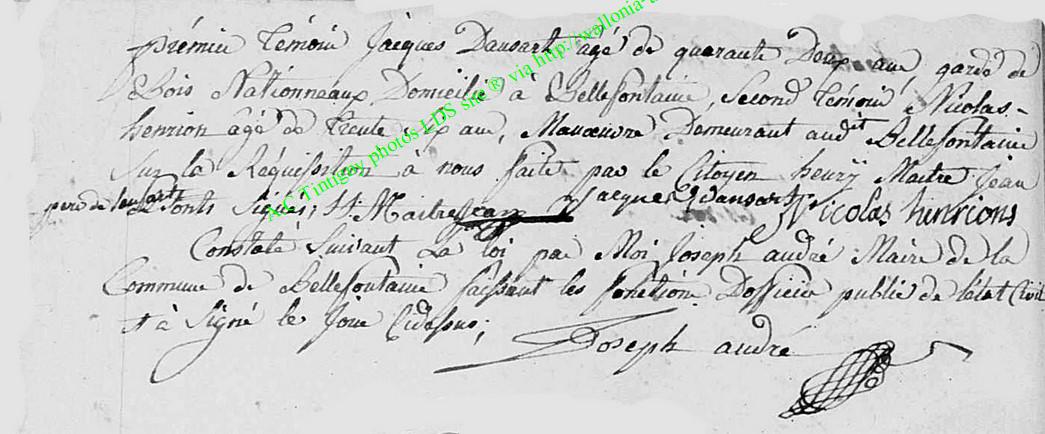 prémier temoin Jacques Dausart agé de quarante Deux ans, garde de
Bois Nationneaux Domicilié à Bellefontaine, second temoin Nicolas
henrion âgé de trente ans, Manœuvre Demeurant audit Bellefontaine
sur la Requissition à nous faite par le Citoyen henrÿ Maitre Jean
pere de l'enfant
et onts Signés; H: Maitrejean Jacques dausart Nicolas hinrions
Constaté suivant La loi par Moi Joseph andré Maire de la
Commune de Bellefontaine faissant les fonctions Dofficier public de letat Civil
et à Signé le Jour Cidessus;
Joseph andré
AC Tintigny photos LDS site ® via http://wallonia-